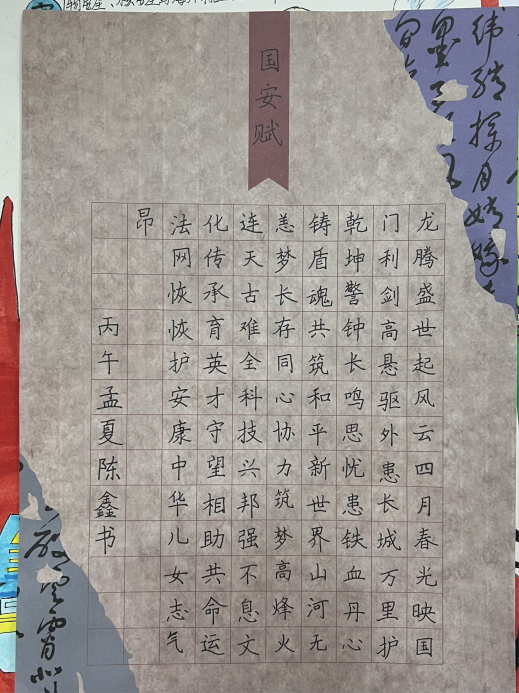 国安赋
龙腾盛世起风云四月春光映国
门利剑高悬驱外患长城万里护
乾坤警钟长鸣思忧患铁血丹心
铸盾魂共筑和平新世界山河无
恙梦长存同心协力筑梦高烽火
连天古难全科技兴邦强不息文
化传承育英才守望相助共命运
法网恢恢护安康中华儿女志气
昂
丙午孟夏陈鑫书